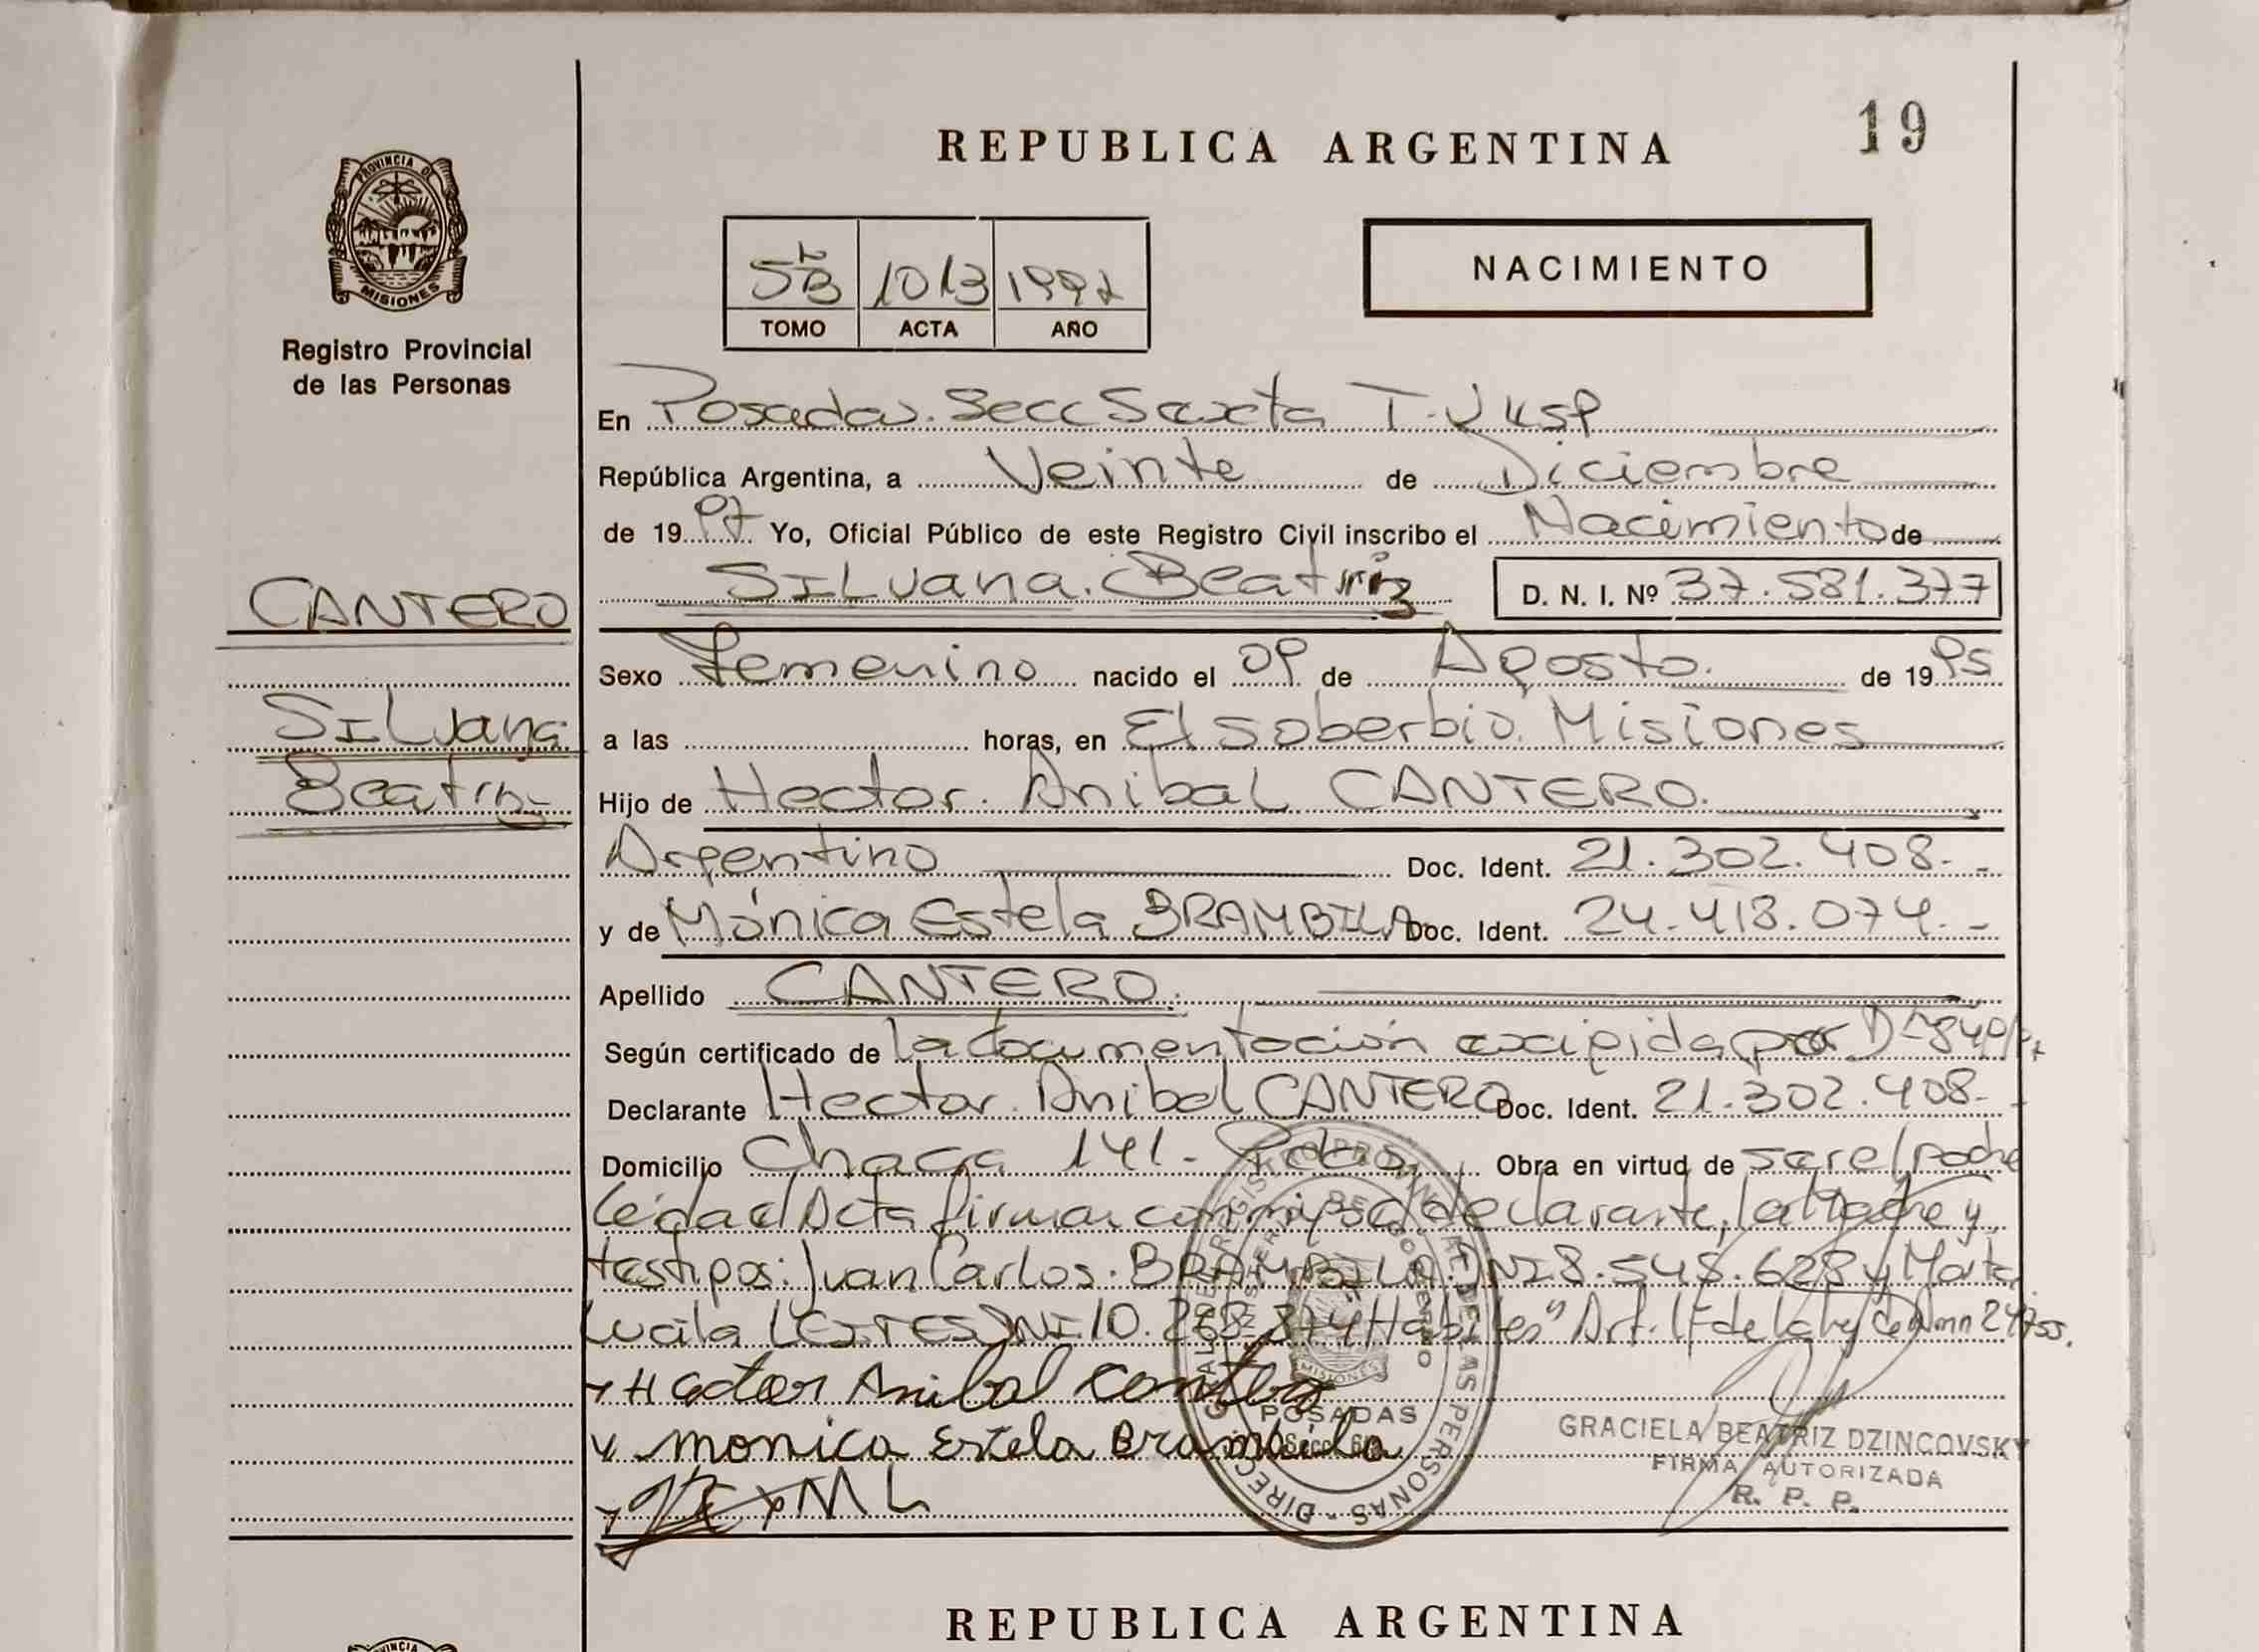 REPUBLICA ARGENTINA
19
PROVINCIA DE
MISIONES
Registro Provincial
de las Personas
1013
TOMO ACTA AÑO
NACIMIENTO
En Posadas. Secc Sexta
República Argentina, a Veinte de Diciembre
de 1997 Yo, Oficial Público de este Registro Civil inscribo el Nacimiento de
SILvana. Beatriz D. N. I. Nº 37.581.377
CANTERO
SILvana
Beatriz
Sexo Femenino nacido el 09 de Agosto. de 1995
a las horas, en El Soberbio. Misiones
Hijo de Hector. Anibal CANTERO.
Argentino Doc. Ident. 21.302.408.-
y de Mónica Estela BRAMBILA Doc. Ident. 24.418.074.-
Apellido CANTERO.
Según certificado de la documentación expedida por
Declarante Hector. Anibal CANTERO Doc. Ident. 21.302.408-
Domicilio 141- Pdas. Obra en virtud de ser el padre
Leída el Acta firman conmigo el declarante, la Madre y
testigos: Juan Carlos. BRAMBILA DNI 8.548.628 y
Lucila LEITES DNI 10.268.874 "Habiles" Art.
Hector Anibal Cantero
monica Estela Brambila
ML
POSADAS
Secc. 6ta
MISIONES
GRACIELA BEATRIZ DZINCOVSKY
FIRMA AUTORIZADA
R. P. P.
REPUBLICA ARGENTINA